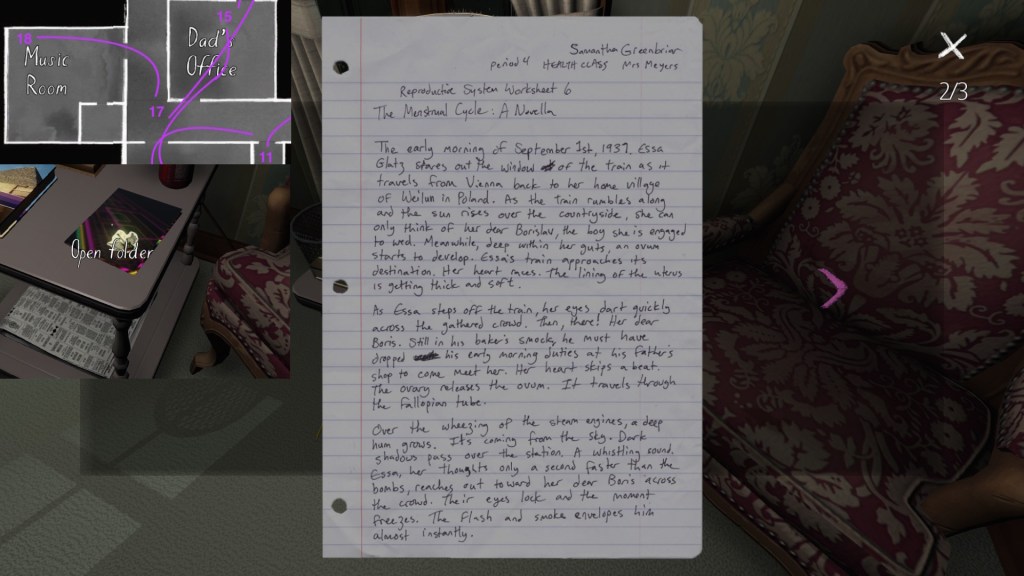 15
18
Music
Room
Dad's
Office
17
11
Open folder
2/3
Samantha Greenbriar
period 4 HEALTH CLASS Mrs Meyers
Reproductive System Worksheet 6
The Menstrual Cycle: A Novella
The early morning of September 1st, 1939. Essa
Glatz stares out the window of the train as it
travels from Vienna back to her home village
of Weilun in Poland. As the train rumbles along
and the sun rises over the countryside, she can
only think of her dear Borislav, the boy she is engaged
to wed. Meanwhile, deep within her guts, an ovum
starts to develop. Essa's train approaches its
destination. Her heart races. The lining of the uterus
is getting thick and soft.
As Essa steps off the train, her eyes dart quickly
across the gathered crowd. Then, there! Her dear
Boris. Still in his baker's smock, he must have
dropped his early morning duties at his father's
shop to come meet her. Her heart skips a beat.
The ovary releases the ovum. It travels through
the fallopian tube.
Over the wheezing of the steam engines, a deep
hum grows. It's coming from the sky. Dark
shadows pass over the station. A whistling sound.
Essa, her thoughts only a second faster than the
bombs, reaches out toward her dear Boris across
the crowd. Their eyes lock and the moment
freezes. The flash and smoke envelopes him
almost instantly.